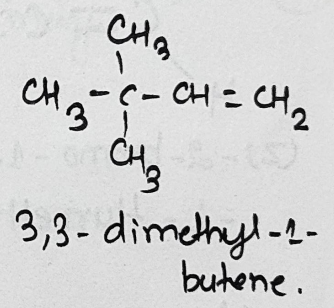 CH3
CH3-C-CH=CH2
CH3
3,3-dimethyl-1-
butene.